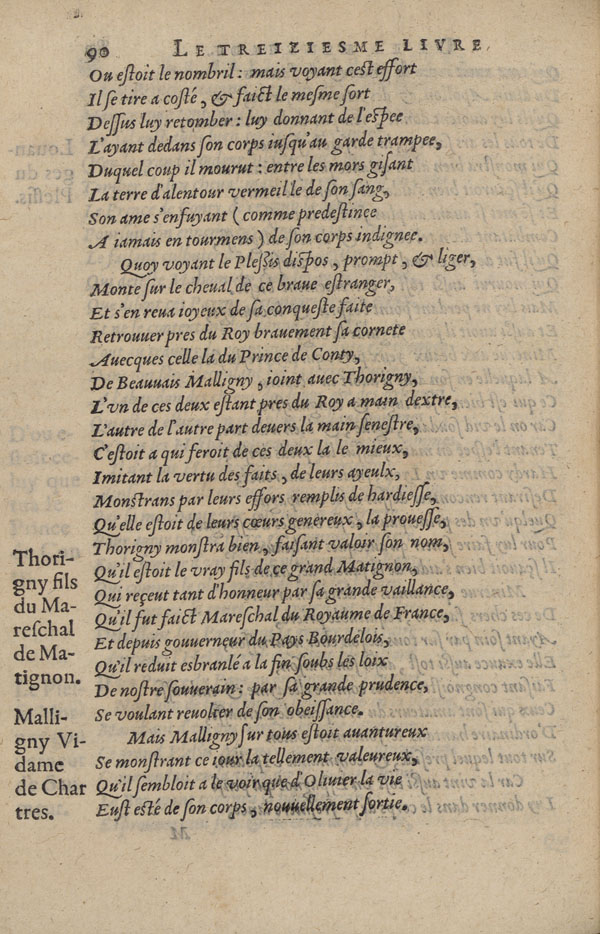 90 LE TREIZIESME LIVRE,
Ou estoit le nombril : mais voyant cest effort
Il se tire a costé, & faict le mesme sort
Dessus luy retomber : luy donnant de l'espee
L'ayant dedans son corps iusqu'au garde trampee,
Duquel coup il mourut : entre les mors gisant
La terre d'alentour vermeille de son sang,
Son ame s'enfuyant ( comme predestinee
A iamais en tourmens ) de son corps indignee.
Quoy voyant le Plessis dispos, prompt, & liger,
Monte sur le cheval de ce braue estranger,
Et s'en reua ioyeux de sa conqueste faite
Retrouuer pres du Roy brauement sa cornete
Auecques celle la du Prince de Conty,
De Beauuais Malligny, ioint avec Thorigny,
L'vn de ces deux estant pres du Roy a main dextre,
L'autre de l'autre part deuers la main senestre,
C'estoit a qui feroit de ces deux la le mieux,
Imitant la vertu des faits, de leurs ayeulx,
Monstrans par leurs effors remplis de hardiesse,
Qu'elle estoit de leurs cœurs genereux, la prouesse,
Thorigny monstra bien, faisant valoir son nom,
Qu'il estoit le vray fils de ce grand Matignon,
Qui reçeut tant d'honneur par sa grande vaillance,
Qu'il fut faict Mareschal du Royaume de France,
Et depuis gouuerneur du Pays Bourdelois,
Qu'il reduit esbranlé a la fin soubs les loix
De nostre souuerain : par sa grande prudence,
Se voulant reuolter de son obeissance.
Mais Malligny sur tous estoit auantureux
Se monstrant ce iour la tellement valeureux,
Qu'il sembloit a le voir que d'Oliuier la vie
Eust esté de son corps, nouuellement sortie.
Thori-
gny fils
du Ma-
reschal
de Ma-
tignon.
Malli-
gny Vi-
dame
de Char
tres.